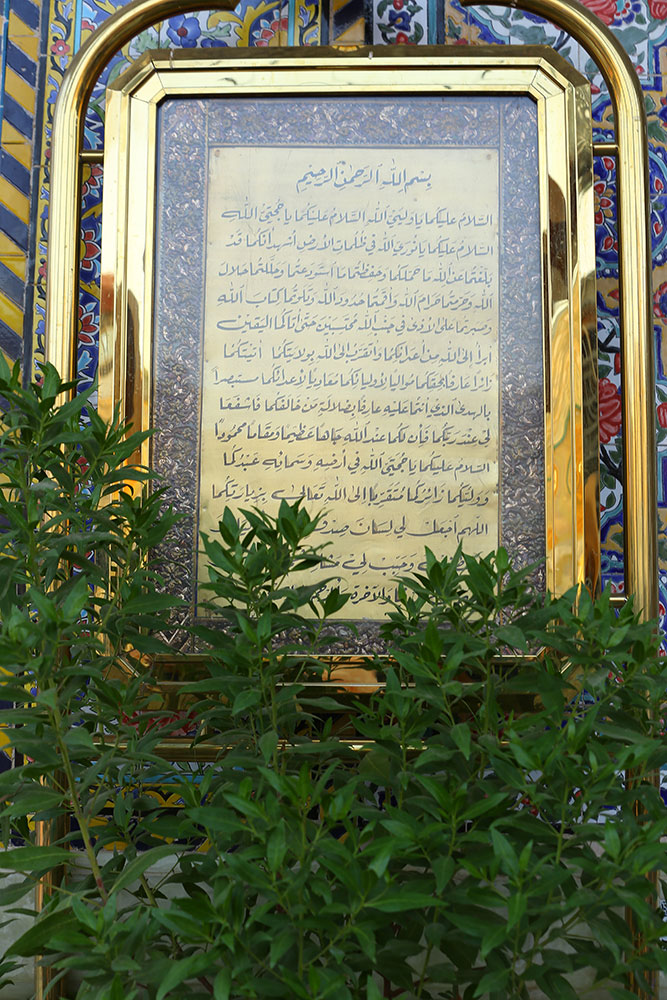 بِسْمِ اللهِ الرَّحْمنِ الرَّحِيمِ
السَّلامُ عليكما يا وليَّيِ الله السَّلامُ عليكما يا حجتي الله
السلام عليكما يا نوري الله في ظلمات الأرض أشهد أنكما قد
بلغتما عن الله ما حملكما وحفظتما ما استودعتما وحللتما حلال
الله وحرمتما حرام الله وأقمتما حدود الله وتلوتما كتاب الله
وصبرتما على الأذى في جنب الله محتسبين حتى أتاكما اليقين
أبرأ إلى الله من أعدائكما وأتقرب إلى الله بولايتكما أتيتكما
زائرا عارفا بحقكما مواليا لأوليائكما معاديا لأعدائكما مستبصرا
بالهدى الذي أنتما عليه عارفا بضلالة من خالفكما فاشفعا
لي عند ربكما فان لكما عند الله جاها عظيما ومقاما محمودا
السلام عليكما يا حجتي الله في أرضه وسمائه عبدكما
ووليكما زائركما متقربا إلى الله تعالى بزيارتكما
اللهم اجعل لي لسان صدق
وحبب لي
والآخرة